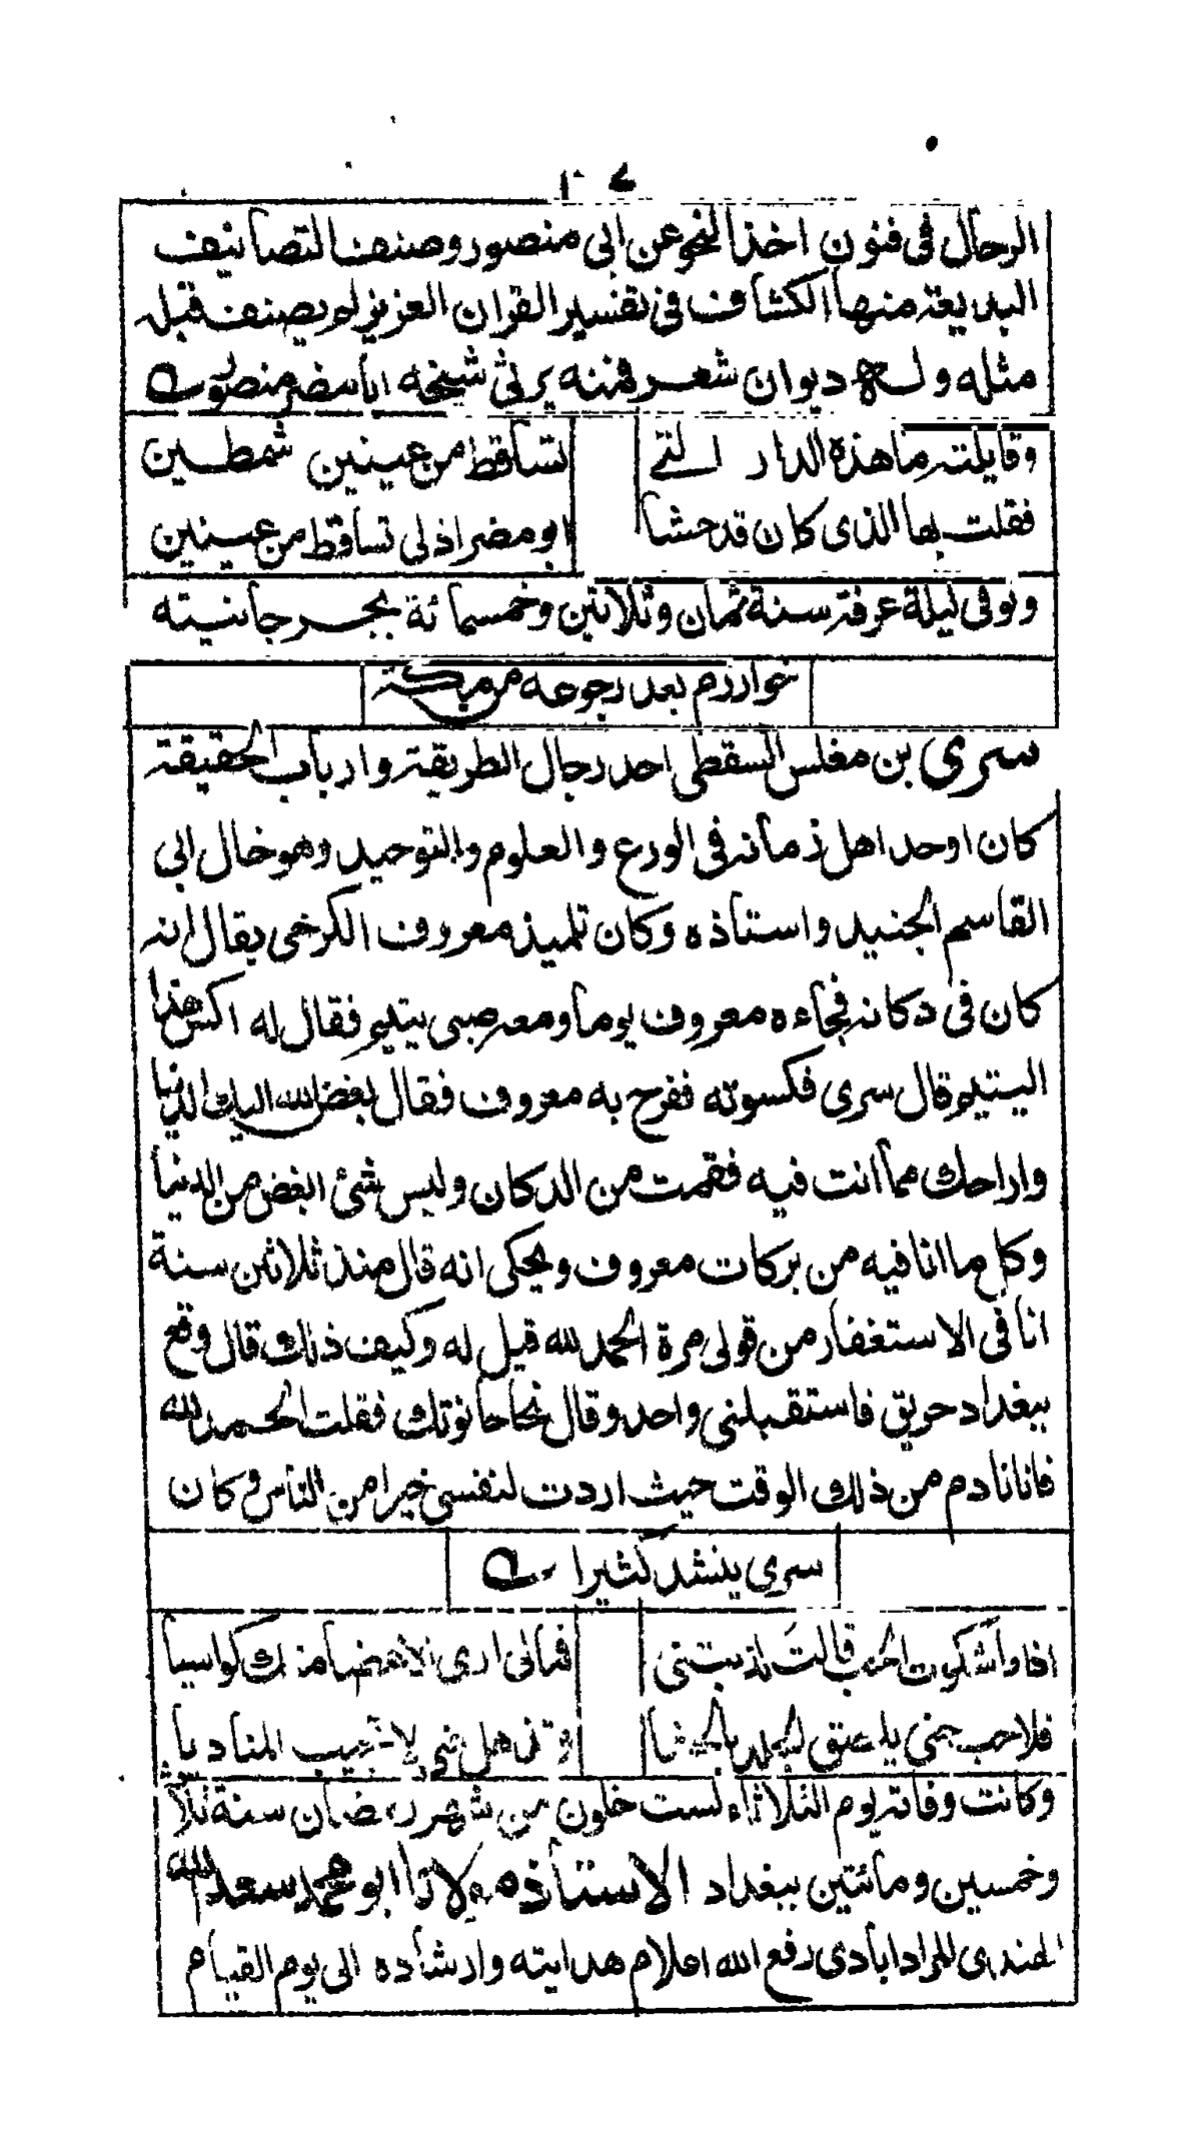 ١٠٧
الرحال فى فنون اخذ النحو عن ابى منصور وصنف التصانيف
البديعة منها الكشاف فى تفسير القران العزيز لم يصنف قبله
مثله وله ديوان شعر فمنه يرثى شيخه ابا مضر منصور
وقايلة ما هذه الدار التى تساقط من عينين شمطين
فقلت بها الذى كان قد حشا ابو مضر اذنى تساقط من عينين
وتوفى ليلة عرفة سنة ثمان وثلاثين وخمسمائة بجرجانيته
خوارزم بعد رجوعه من مكة
سرى بن مغلس السقطى احد رجال الطريقة وارباب الحقيقة
كان اوحد اهل زمانه فى الورع والعلوم والتوحيد وهو خال ابى
القاسم الجنيد واستاذه وكان تلميذ معروف الكرخى يقال انه
كان فى دكانه فجاءه معروف يوما ومعه صبى يتيم فقال له اكس هذا
اليتيم قال سرى فكسوته ففرح به معروف فقال بغض الله اليك الدنيا
واراحك مما انت فيه فقمت من الدكان وليس شئ ابغض من الدنيا
وكل ما انا فيه من بركات معروف ويحكى انه قال منذ ثلاثين سنة
انا فى الاستغفار من قولى مرة الحمد لله قيل له وكيف ذلك قال وقع
ببغداد حريق فاستقبلنى واحد وقال نجا حانوتك فقلت الحمد لله
فانا نادم من ذلك الوقت حيث اردت لنفسى خيرا من الناس وكان
سرى ينشد كثيرا
اذا ما شكوت الحب قالت كذبتنى فمالى ارى الاعضا منك كواسيا
فلا حب حتى يلصق الجلد بالحشا وتذهل حتى لا تجيب المناديا
وكانت وفاته يوم الثلاثاء لست خلون من شهر رمضان سنة ثلاث
وخمسين ومائتين ببغداد الاستاذ مولانا ابو محمد سعد الله
الهندى المرادابادى رفع الله اعلام هدايته وارشاده الى يوم القيام